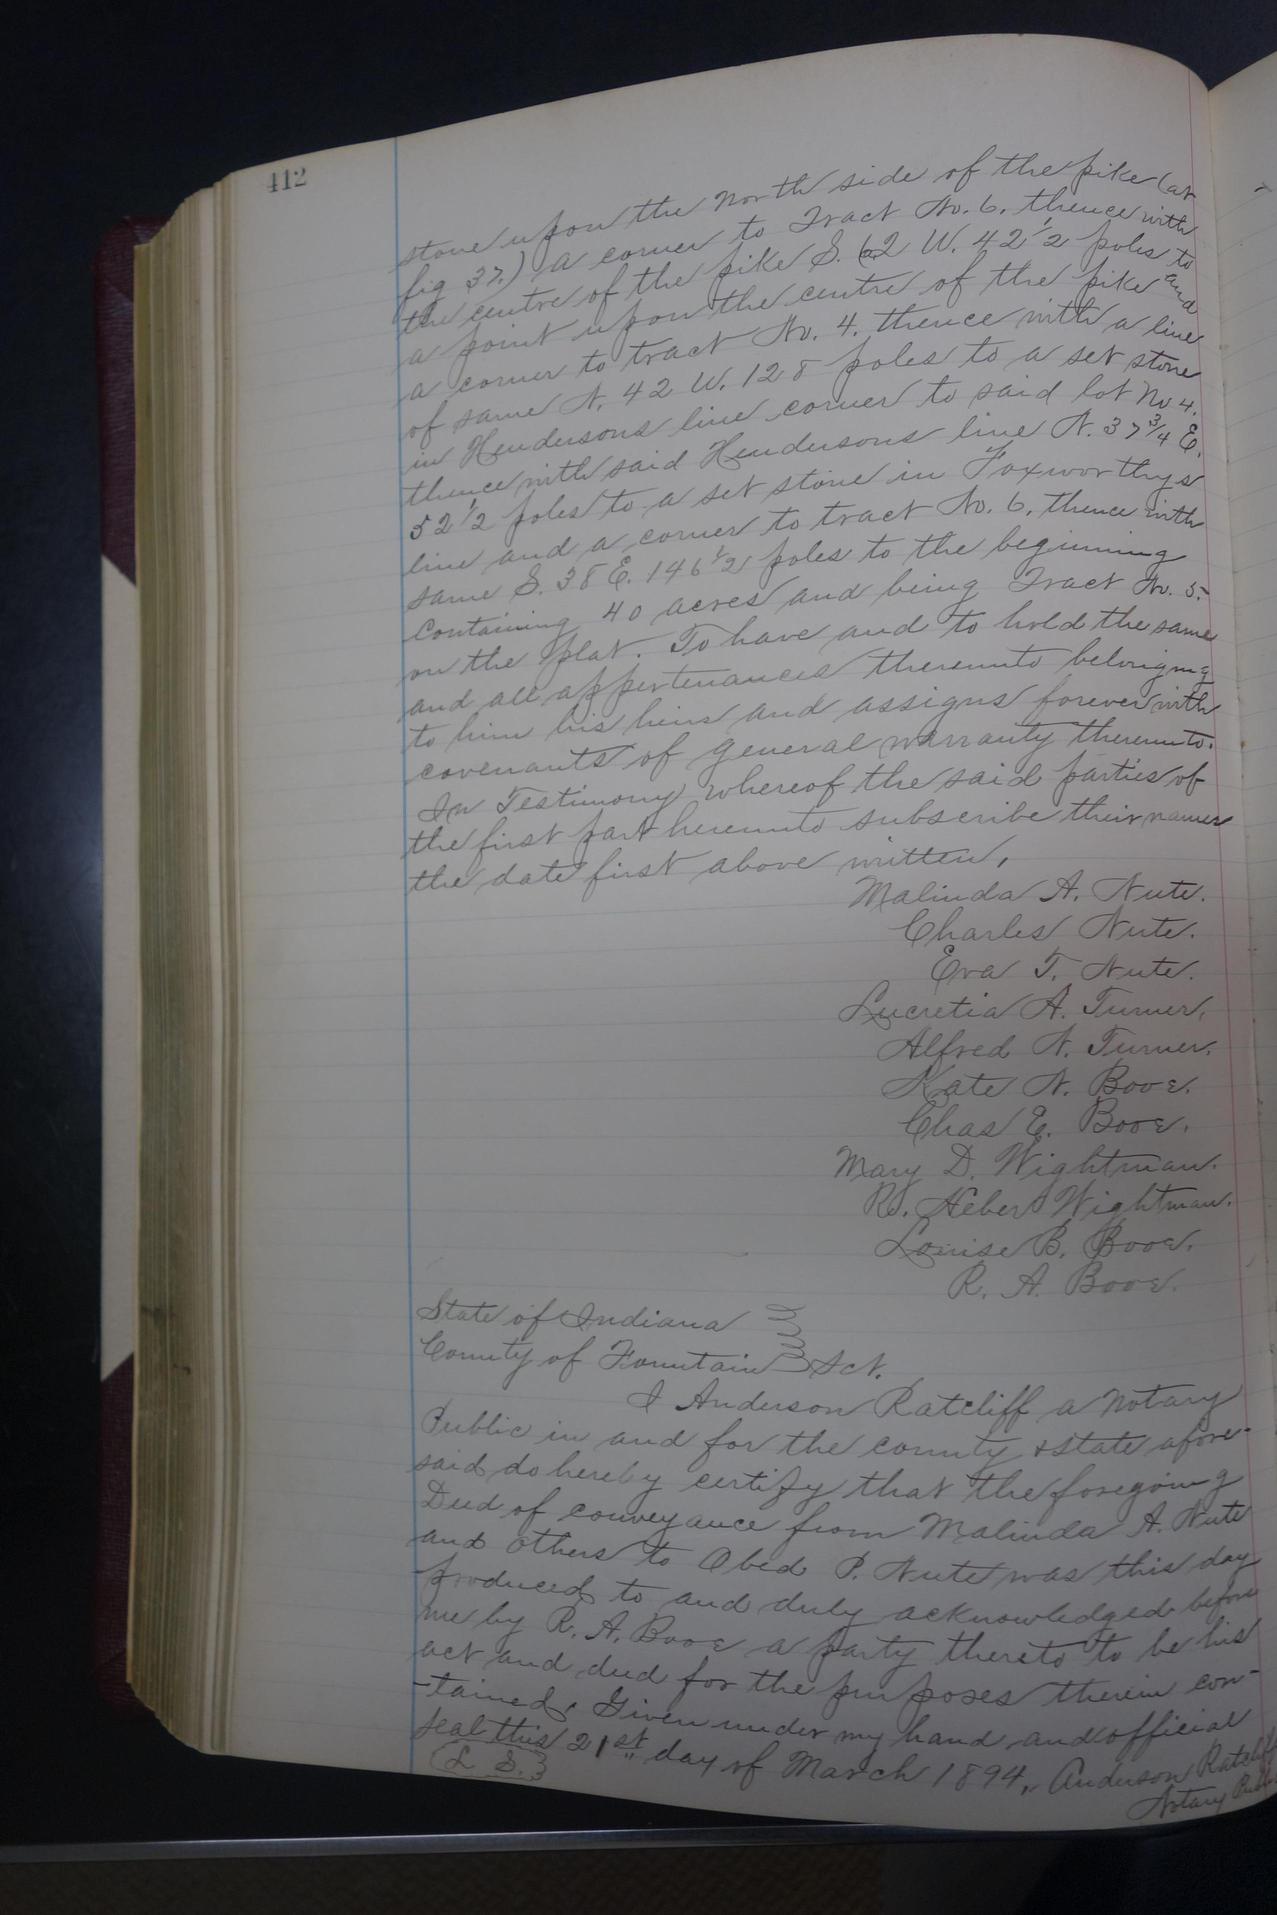 412
stone upon the North side of the pike (at
fig 37.) a corner to Tract No. 6. thence with
the centre of the pike S. 62 W. 42 1/2 poles to
a point upon the centre of the pike and
a corner to tract No. 4. thence with a line
of same N. 42 W. 128 poles to a set stone
in Hendersons line corner to said lot No 4.
thence with said Hendersons line N. 37 3/4 E.
52 1/2 poles to a set stone in Foxworthys
line and a corner to tract No. 6. thence with
same S. 38 E. 146 1/2 poles to the beginning
containing 40 acres and being Tract No. 5.
on the plat. To have and to hold the same
and all appertenances thereunto belonging
to him his heirs and assigns forever with
covenants of general warranty thereunto.
In Testimony whereof the said parties of
the first part hereunto subscribe their names
the date first above written,
Malinda A. Nute.
Charles Nute.
Eva T. Nute.
Lucretia A. Turner,
Alfred N. Turner.
Kate N. Booe.
Chas E. Booe.
Mary D. Wightman.
R. Heber Wightman.
Louise B. Booe.
R. A. Booe.
State of Indiana
County of Fountain Sct.
I Anderson Ratcliff a Notary
Public in and for the county & state afore-
said do hereby certify that the foregoing
Deed of conveyance from Malinda A. Nute
and others to Obed P. Nute was this day
produced to and duly acknowledged before
me by R. A. Booe a party thereto to be his
act and deed for the purposes therein con-
-tained. Given under my hand and official
seal this 21st day of March 1894, Anderson Ratcliff
(L S.) Notary Public